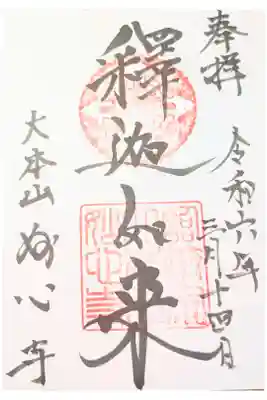 奉拝
令和六年三月十四日
釋迦如来
大本山妙心寺